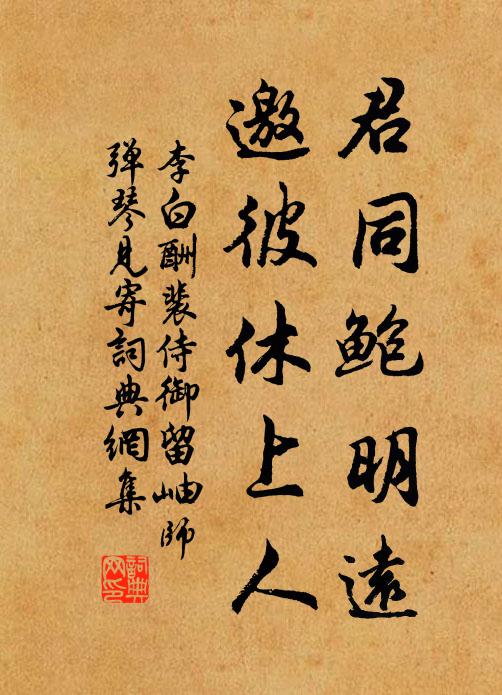 君同鲍明遠
邀彼休上人
李白酬裴侍御留岫师
弹琴見寄詞典網集
詞典网印